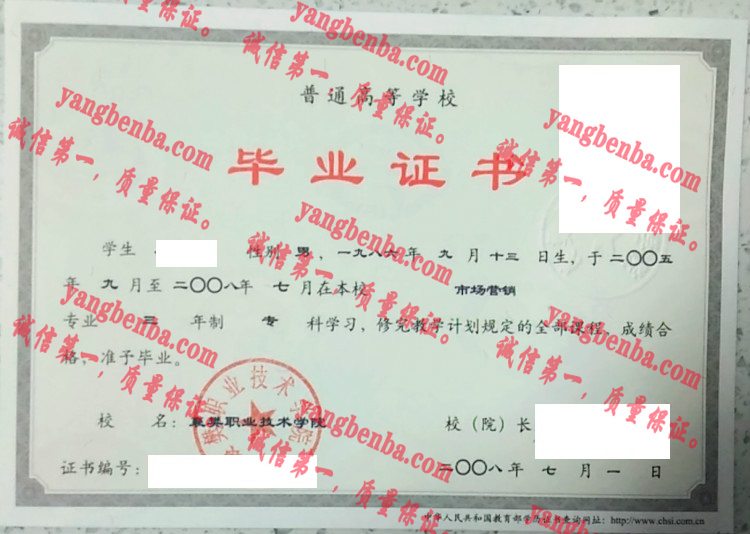 普通高等学校
毕业证书
学生 性别 男，一九八六年 九 月 十三 日生，于二〇〇五
年 九 月至二〇〇八年 七 月在本校 市场营销
专业 三 年制 专 科学习，修完教学计划规定的全部课程，成绩合
格，准予毕业。
校 名：襄樊职业技术学院 校（院）长
证书编号： 二〇〇八年 七 月 一 日
中华人民共和国教育部学历证书查询网址：http://www.chsi.com.cn
yangbenba.com
诚信第一，质量保证。
yangbenba.com
诚信第一，质量保证。
yangbenba.com
诚信第一，质量保证。
yangbenba.com
诚信第一，质量保证。
yangbenba.com
诚信第一，质量保证。
yangbenba.com
诚信第一，质量保证。
yangbenba.com
诚信第一，质量保证。
yangbenba.com
诚信第一，质量保证。